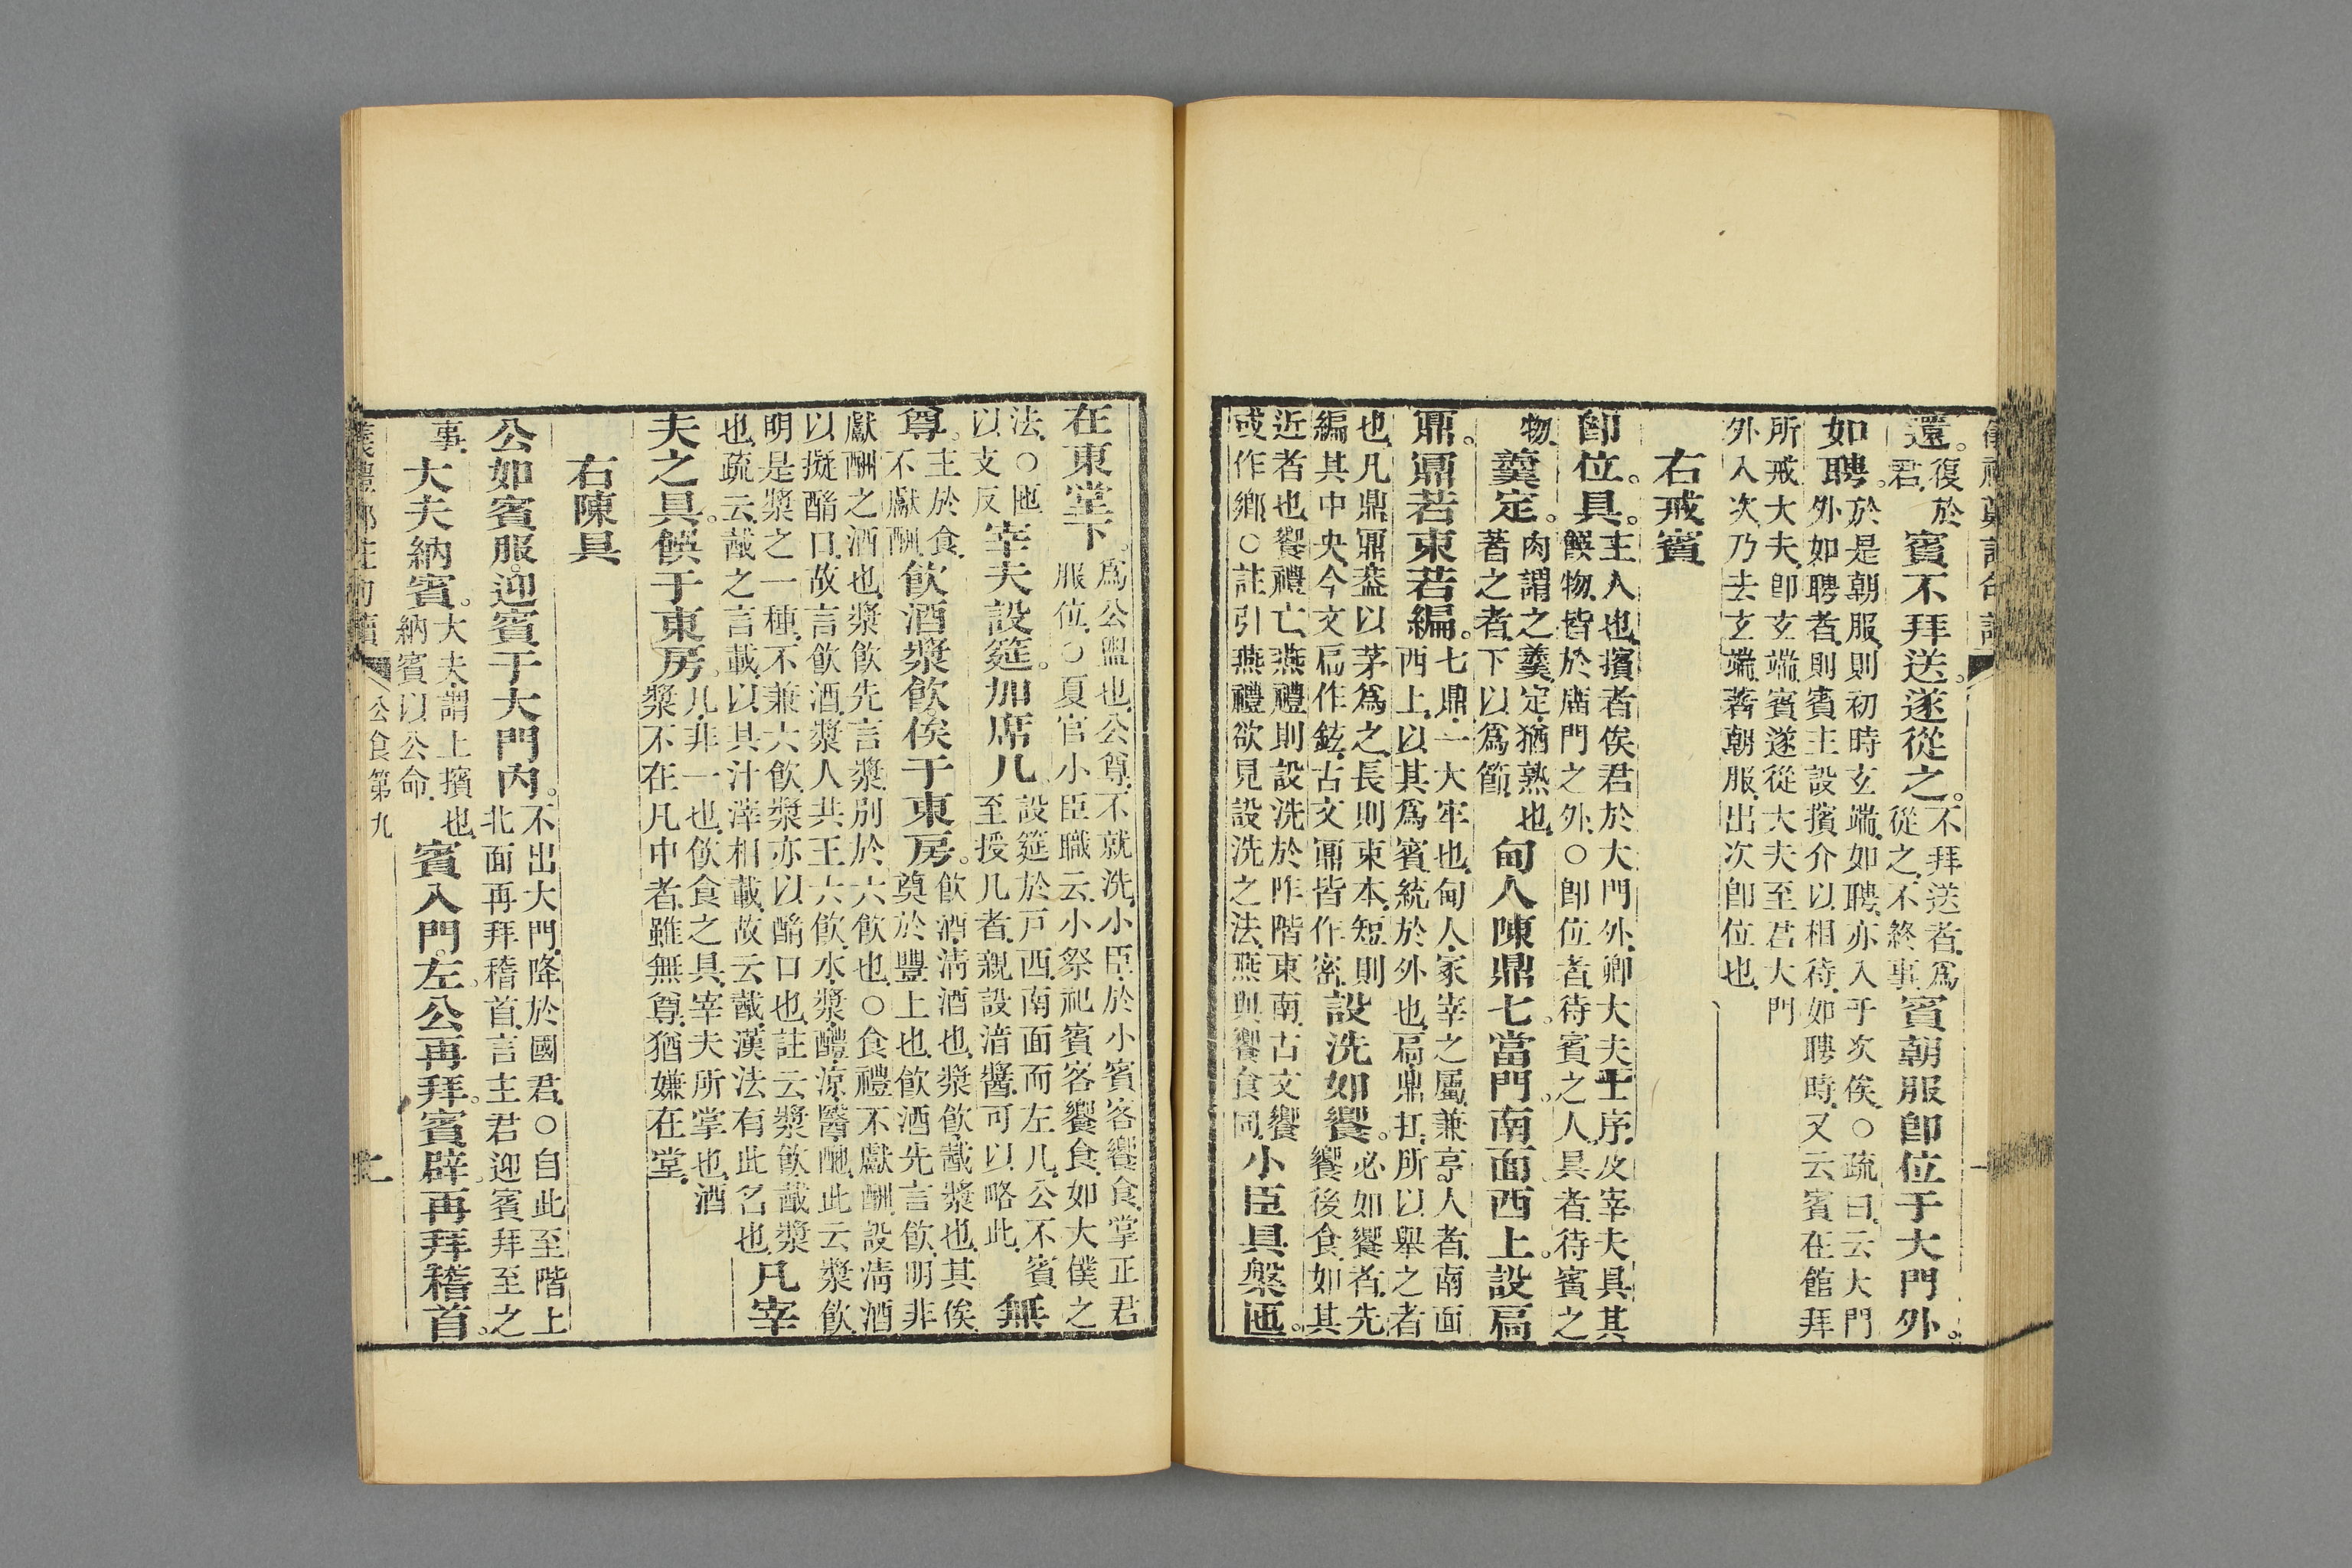 還。復於君。賓不拜送。遂從之。不拜送者、爲從之、不終事、賓朝服卽位于大門外。
如聘。於是朝服、則初時玄端、如聘、亦入于次俟、○疏曰、云大門外如聘者、則賓主設擯介以相待、如聘時、又云賓在館拜
所戒大夫、卽玄端、賓遂從大夫至君大門外、入次、乃去玄端、著朝服、出次卽位也、
右戒賓
卽位。具。主人也、擯者俟君於大門外、卿大夫士序、及宰夫具其饌物、皆於廟門之外、○卽位者、待賓之人、具者、待賓之
物、羹定。肉謂之羹、定、猶熟也、著之者、下以爲節、甸人陳鼎七。當門。南面西上。設扃
鼏。鼏若束若編。七鼎、一大牢也、甸人、冢宰之屬、兼亨人者、南面西上、以其爲賓、統於外也、扃、鼎扛、所以舉之者
也、凡鼎鼏、蓋以茅爲之、長則束本、短則編其中央、今文扃作鉉、古文鼏皆作密、設洗如饗。必如饗者、先饗後食、如其
近者也、饗禮亡、燕禮則設洗於阼階東南、古文饗或作鄉、○註引燕禮、欲見設洗之法、燕與饗食同、小臣具槃匜。
在東堂下、爲公盥也、公尊、不就洗、小臣於小賓客饗食、掌正君服位、○夏官小臣職云、小祭祀賓客饗食、如大僕之
法、○匜以支反宰夫設筵。加席几、設筵於戶西、南面而左几、公不賓至授几者、親設湆醬、可以略此、無
尊。主於食、不獻酬、飮酒漿飮。俟于東房。飮酒、淸酒也、漿飮、酨漿也、其俟奠於豐上也、飮酒先言飮、明非
獻酬之酒也、漿飮先言漿、別於六飮也、○食禮不獻酬、設淸酒以擬酳口、故言飮酒、漿人共王六飮、水、漿、醴、涼、醫、酏、此云漿飮、
明是漿之一種、不兼六飮、漿亦以酳口也、註云漿飮酨漿也、疏云、酨之言載、以其汁滓相載、故云酨、漢法有此名也、凡宰
夫之具。饌于東房。凡、非一也、飮食之具、宰夫所掌也、酒漿不在凡中者、雖無尊、猶嫌在堂、
右陳具
公如賓服。迎賓于大門內。不出大門、降於國君、○自此至階上北面再拜稽首、言主君迎賓拜至之
事、大夫納賓。大夫、謂上擯也、納賓以公命、賓入門。左。公再拜。賓辟。再拜稽首。
公食第九